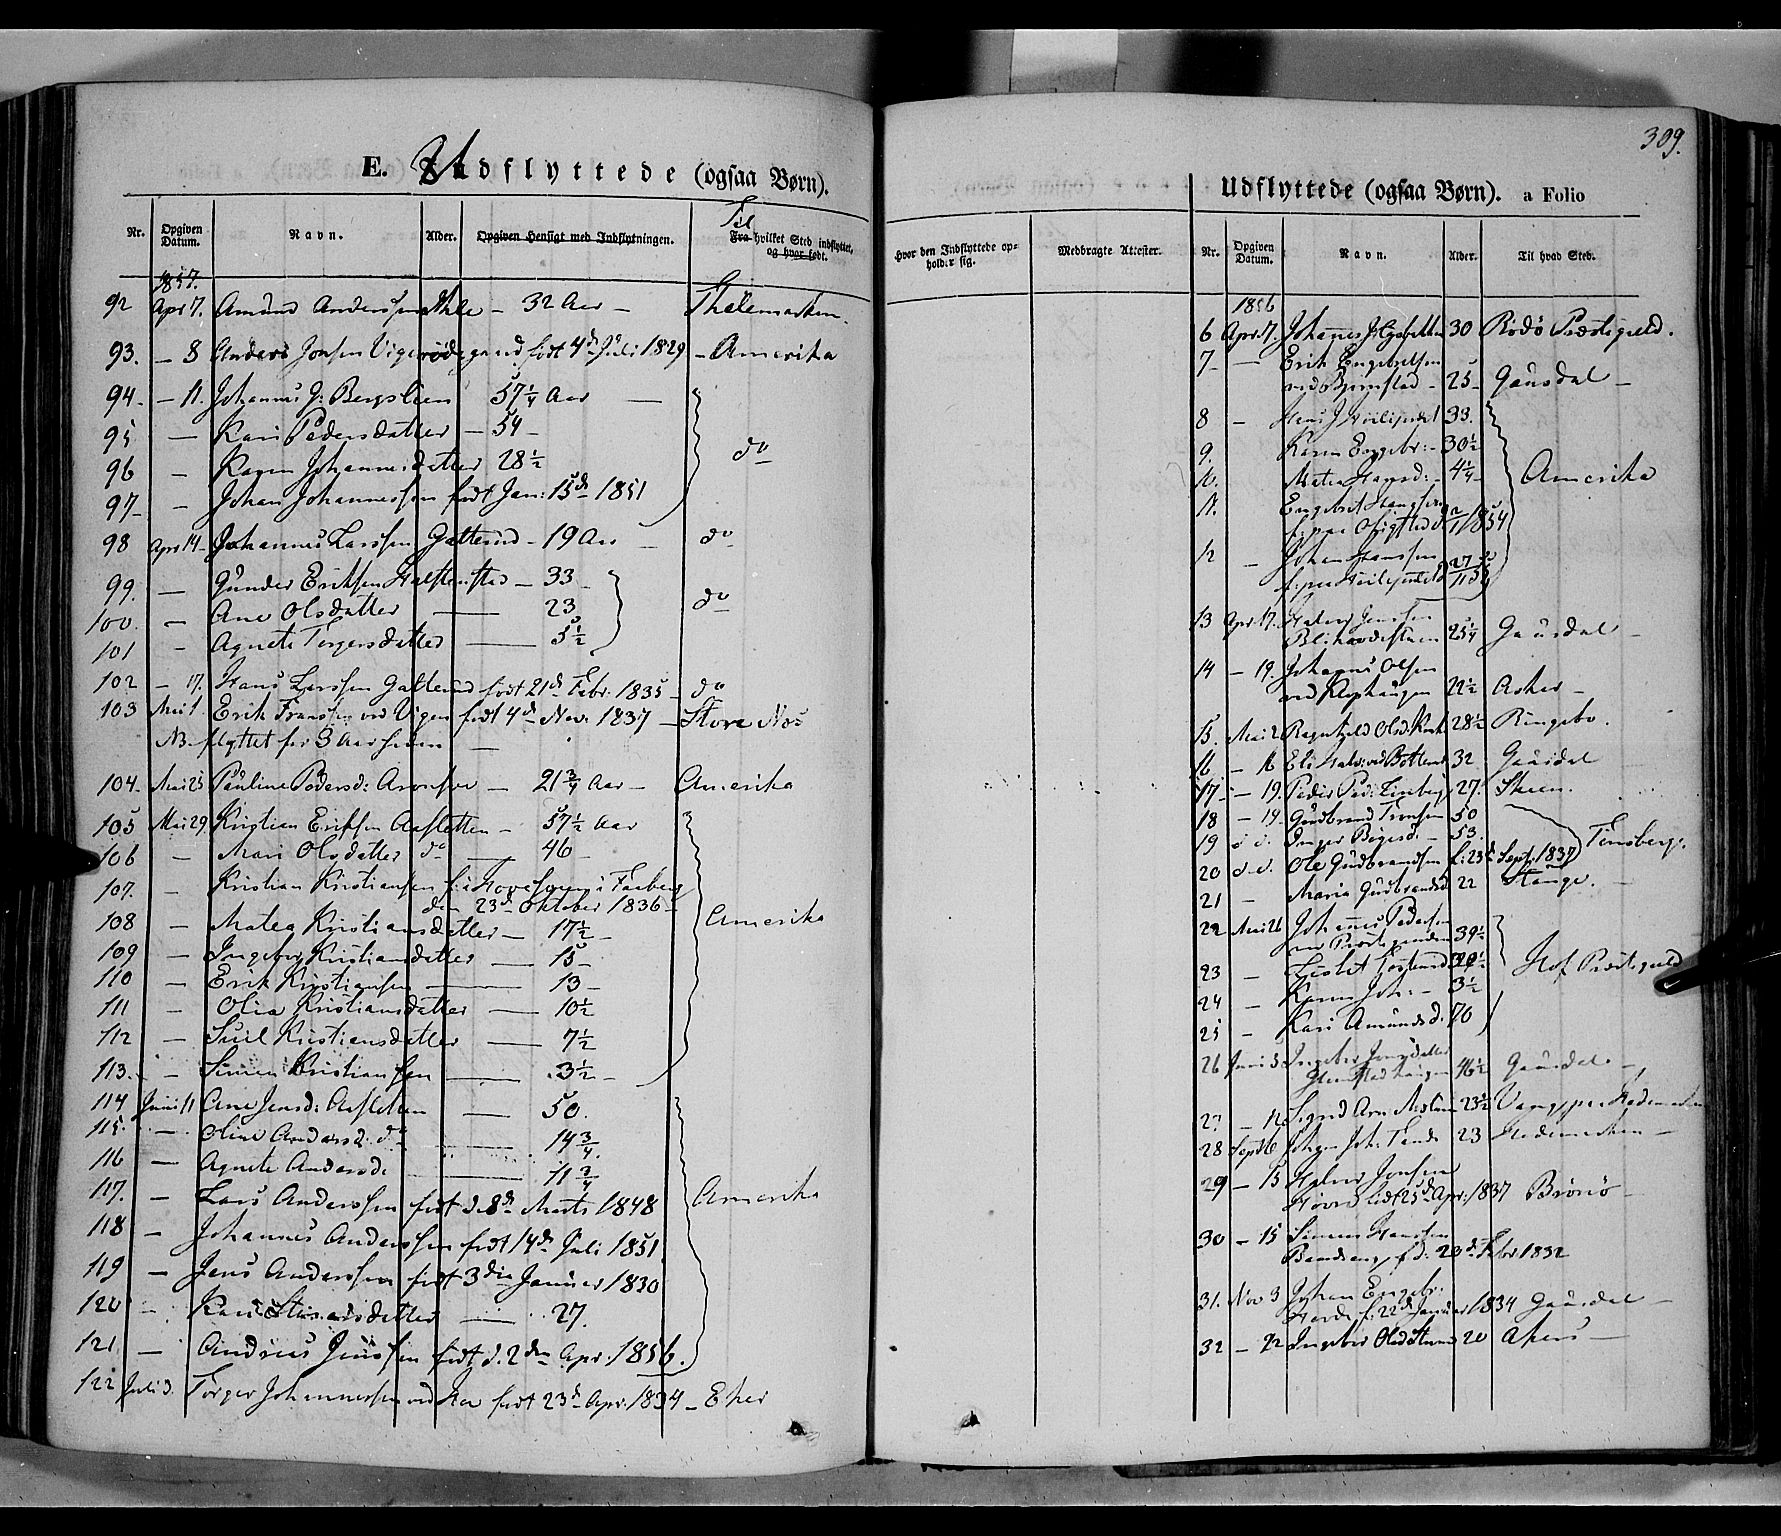 309.
E. Udflyttede (ogsaa Børn).
Nr. Opgiven Datum. Navn. Alder. Opgiven Hensigt med Indflytningen. Til Fra hvilket Sted indflyttet, og hvor født.
1857.
92 Apr 7. Amund Anderssen 32 Aar — Thelemarken.
93. — 8 Anders Jonsen Vigerødegaard født 4de Juli 1829 — Amerika
94 — 11. Johannes J: Bergslien 57¼ Aar —
95 — Kari Pedersdatter — 54 —
96 — Karen Johannesdatter 28½ do
97 — Johan Johannessen født Jan: 15de 1851
98 Apr 14 Johannes Larssen Gallerud — 19 Aar — do
99. — Gunder Eriksen — 33 —
100. — Ane Olsdatter — 23 do
101 — Agnete Torgersdatter — 5½
102 — 17. Hans Larssen Gallerud født 21de Febr. 1835 — do
103 Mai 1 Erik Franssen ved Vigen født 4de Nov. 1837 — Store Næs
NB flyttet for 3 Aar siden —
104 Mai 25 Pauline Pedersd: — 21¾ Aar — Amerika
105 Mai 29 Kristian Eriksen Aasletten — 57½ Aar
106 — Mari Olsdatter do — 46 —
107. — Kristian Kristiansen f: i i Faaberg
d. 23de Oktober 1836 —
108 — Matea Kristiansdatter — 17½ — Amerika
109 — Ingeborg Kristiansdatter — 15 —
110 — Erik Kristiansen — 13 —
111 — Olia Kristiansdatter — 10½
112 — Siril Kristiansdatter — 7½
113. — Simen Kristiansen — 3½ —
114 Juni 11 Ane Jensd: Aasletten — 50.
115. — Oline Andersd. do 14¾
116 — Agnete Andersd. 11¾
117. — Lars Anderssen født d. 8de Marts 1848 Amerika
118 — Johannes Anderssen født 14de Juli 1851
119 — Jens Anderssen født 3die Januar 1830
120 — Kari datter — 27.
121 — Andreas Jenssen født d. 2den Apr. 1856.
122 Juli 3. Torger Johannessen født 23de Apr. 1834 — Eker
Udflyttede (ogsaa Børn). a Folio
Hvor den Indflyttede opholder sig. Medbragte Attester. Nr. Opgiven Datum. Navn. Alder. Til hvad Sted.
1856
6 Apr. 17. Johannes 30 Rødø Præstegjeld.
7 — Erik Engebretsen
ved Bjørnstad — 25 — Gausdal —
8 — Hans J 33.
9. Karen Engebr: — 30½
10. Matea Hansd: — 4¼ Amerika
11. Engebret Hanssen
1854
12 — Johan Hanssen
13 Apr 17. Halvor Jenssen
25¼ Gausdal —
14 — 19. Johannes Olsen
ved Klophaugen 22½ Asker —
15. Mai 2 Ragnhild Olsd. 28½ Ringebo.
16 — 16 Eli 32 Gausdal
17 — 19. Peder Ped: Lineberg 27. Skeen.
18 — 19. Gudbrand 50
19 d. d. Inger — 53. Tønsberg.
20 d. d. Ole Gudbrandsen f: 23de Sept. 1837
21 — Maria Gudbrandsd 22 Stange. —
22 Mai 26 Johannes Pedersen
39½
23 — Hof Præstegjeld
24 — Karen Joh: — 3½
25 — Kari Amundsd: 70
26 Juni 3 Ingebor Jensdatter
46½ Gausdal —
27 — 12 Sigrid 23½ Vang pr Hedemarken
28 Sept 6 Johan Joh: 23 Hedemarken —
29 — 15 Halvor Jonsen
25de Apr. 1837 Brønø —
30 — 15 Simen Hanssen
f. d: 20de Febr 1832
31. Nov 3 Johan Engebr:
f: 22de Januar 1834 Gausdal —
32 — 22 Ingebor Olsd 20 Akers —